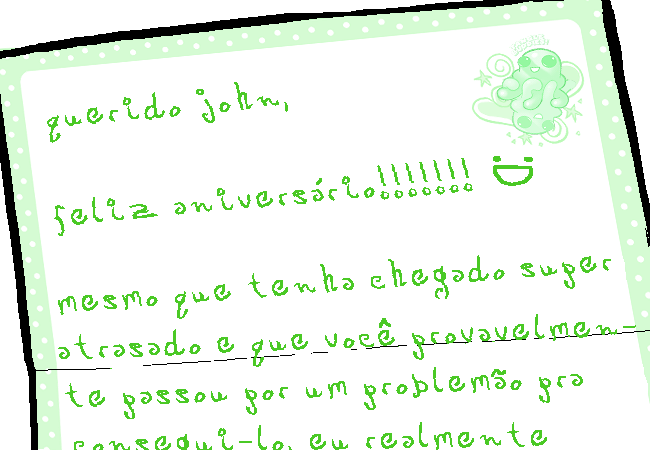 querido john,
feliz aniversário!!!!!!! :D
mesmo que tenha chegado super
atrasado e que você provavelmen-
te passou por um problemão pra
consegui-lo, eu realmente